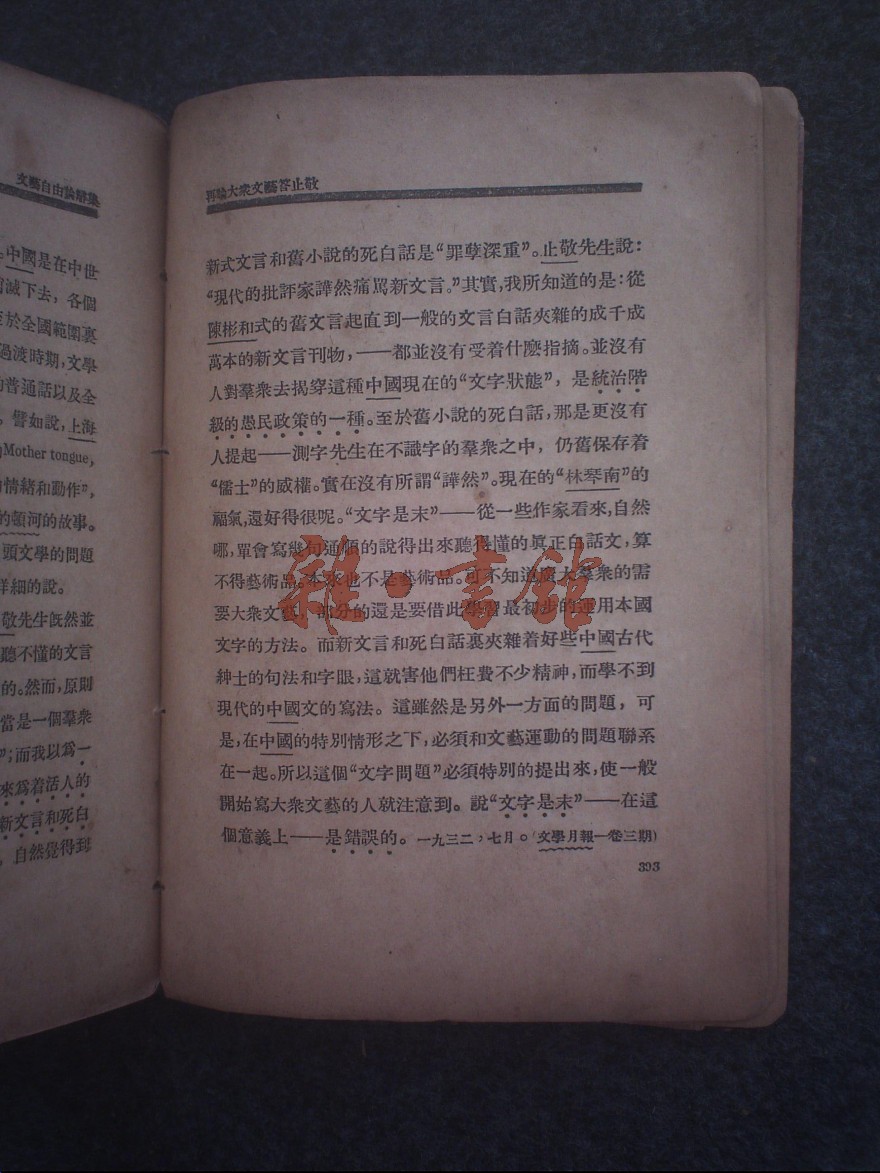 文藝自由論辯集
中國是在中世
滅下去，各個
至於全國範圍裏
過渡時期，文學
的普通話以及全
譬如說，上海
Mother tongue,
情緒和動作”，
的頓河的故事。
頭文學的問題
詳細的說。
敬先生既然並
聽不懂的文言
的。然而，原則
當是一個羣衆
”；而我以爲一
來爲着活人的
新文言和死白
自然覺得到
再論大衆文藝答止敬
新式文言和舊小說的死白話是“罪孽深重”。止敬先生說：
“現代的批評家譁然痛罵新文言。”其實，我所知道的是：從
陳彬和式的舊文言起直到一般的文言白話夾雜的成千成
萬本的新文言刊物，——都並沒有受着什麼指摘。並沒有
人對羣衆去揭穿這種中國現在的“文字狀態”，是統治階
級的愚民政策的一種。至於舊小說的死白話，那是更沒有
人提起——測字先生在不識字的羣衆之中，仍舊保存着
“儒士”的威權。實在沒有所謂“譁然”。現在的“林琴南”的
福氣，還好得很呢。“文字是末”——從一些作家看來，自然
哪，單會寫幾句通順的說得出來聽得懂的眞正白話文，算
不得藝術品。本來也不是藝術品。可不知道廣大羣衆的需
要大衆文藝，部分的還是要借此學習最初步的運用本國
文字的方法。而新文言和死白話裏夾雜着好些中國古代
紳士的句法和字眼，這就害他們枉費不少精神，而學不到
現代的中國文的寫法。這雖然是另外一方面的問題，可
是，在中國的特別情形之下，必須和文藝運動的問題聯系
在一起。所以這個“文字問題”必須特別的提出來，使一般
開始寫大衆文藝的人就注意到。說“文字是末”——在這
個意義上——是錯誤的。一九三二，七月。（文學月報一卷三期）
393
雜·書館